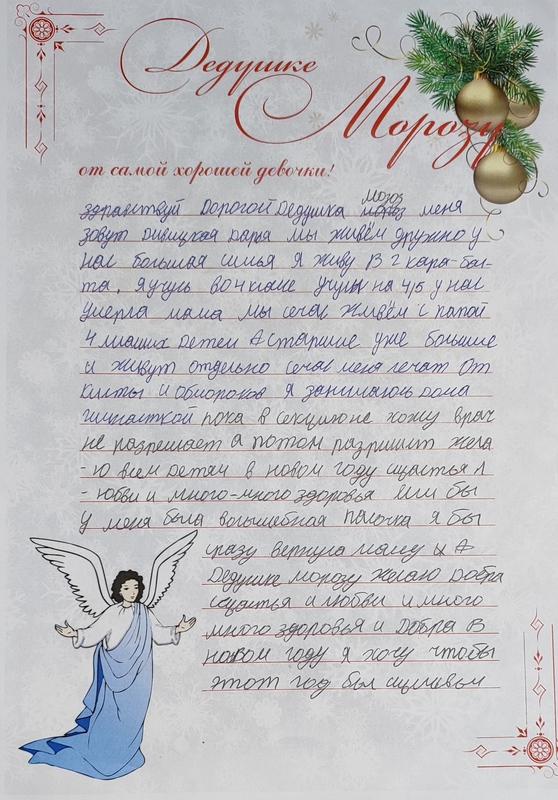 Дедушке
Морозу
от самой хорошей девочки!
здравствуй Дорогой Дедушка Мороз меня
зовут Дарья мы живём дружно у
нас большая семья Я живу в г кара-бал-
та. Я учусь во 4 класе учусь на 4/5 у нас
умерла мама мы сечас живём с папой
4 младших детей А старшие уже большие
и живут отдельно сечас меня лечат от
кисты и обмороков Я занимаюсь дома
гимнасткой пока в секцию не хожу врач
не разрешает а потом разришит жела
-ю всем детям в новом году щастья л
-юбви и много-много здоровья если бы
у меня была волшебная палочка я бы
сразу вернула маму и А
Дедушке морозу желаю добра
щастья и любви и много
много здоровья и добра в
новом году я хочу чтобы
этот год был щасливым